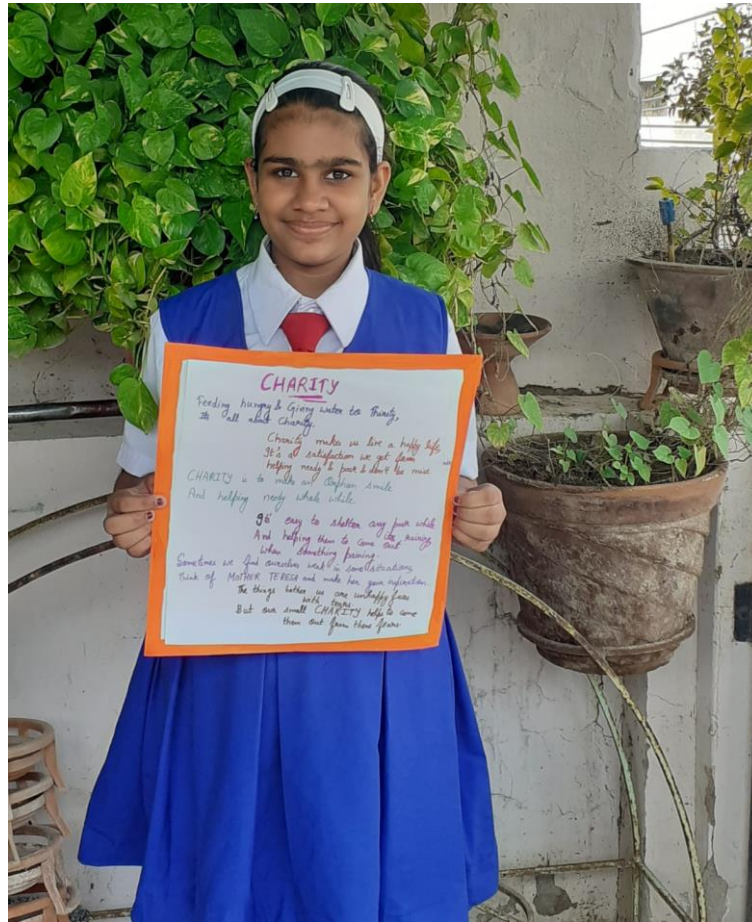 CHARITY
Feeding hungry & Giving water to Thirsty,
Its all about Charity.
Charity makes us live a happy life,
It's a satisfaction we get from
helping needy & poor & don't be mise
CHARITY is to make an Orphan smile
And helping needy whole while
It's easy to shelter any poor while
its raining
And helping them to come out
When something paining.
Sometimes we find ourselves weak in some situations
Think of MOTHER TERESA and make her your inspiration.
The things bother us are unhappy faces
with tears
But our small CHARITY helps to come
them out from there fears